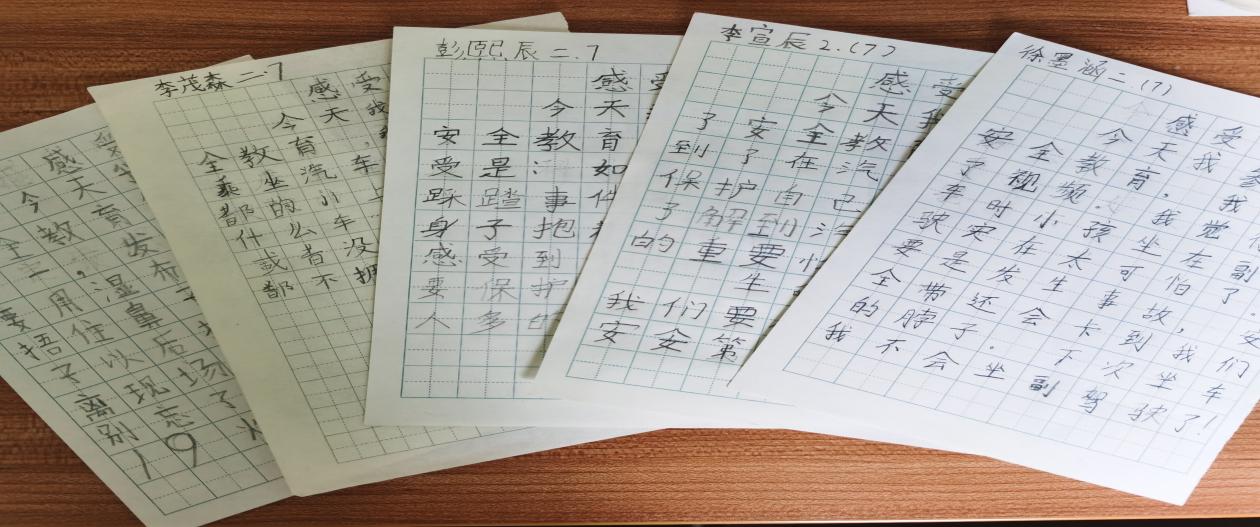 感受
今天
全教育
一，发
要用湿布
捂住鼻子
子以后
离现场
别忘了
19火
李茂森二.7
感受
今天，我
全教育，
乘坐汽车
都的小
什么车
或者没
都不拥
彭熙辰二.7
感受
今天
安全教育
受是：如
踩踏事件
身子抱
感受到
要保护
人多的
李宣辰2.(7)
感受
今天我
了安全教
到了在汽
保护自己
了解到
的重要性
生
我们要
安全第
徐墨涵二(7)
感受
今天我参
安全教育，我
了视频.我觉
车时小孩坐在副
驶实在太可怕了
要是发生事故，安
全带还会卡到我们
的脖子.下次坐车
我不会坐副驾驶了!